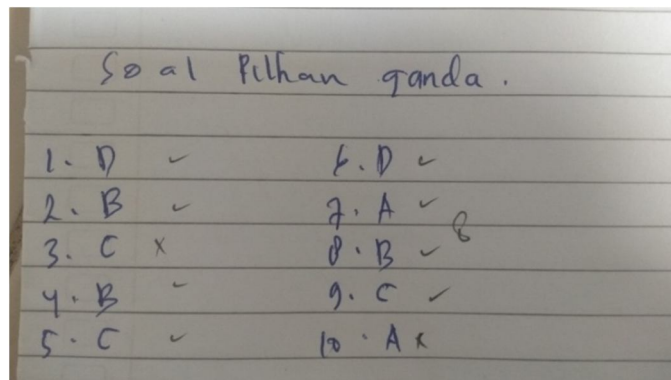 Soal Pilhan ganda.
1. D ✓
2. B ✓
3. C ×
4. B ✓
5. C ✓
6. D ✓
7. A ✓
8. B ✓
8
9. C ✓
10. A ×